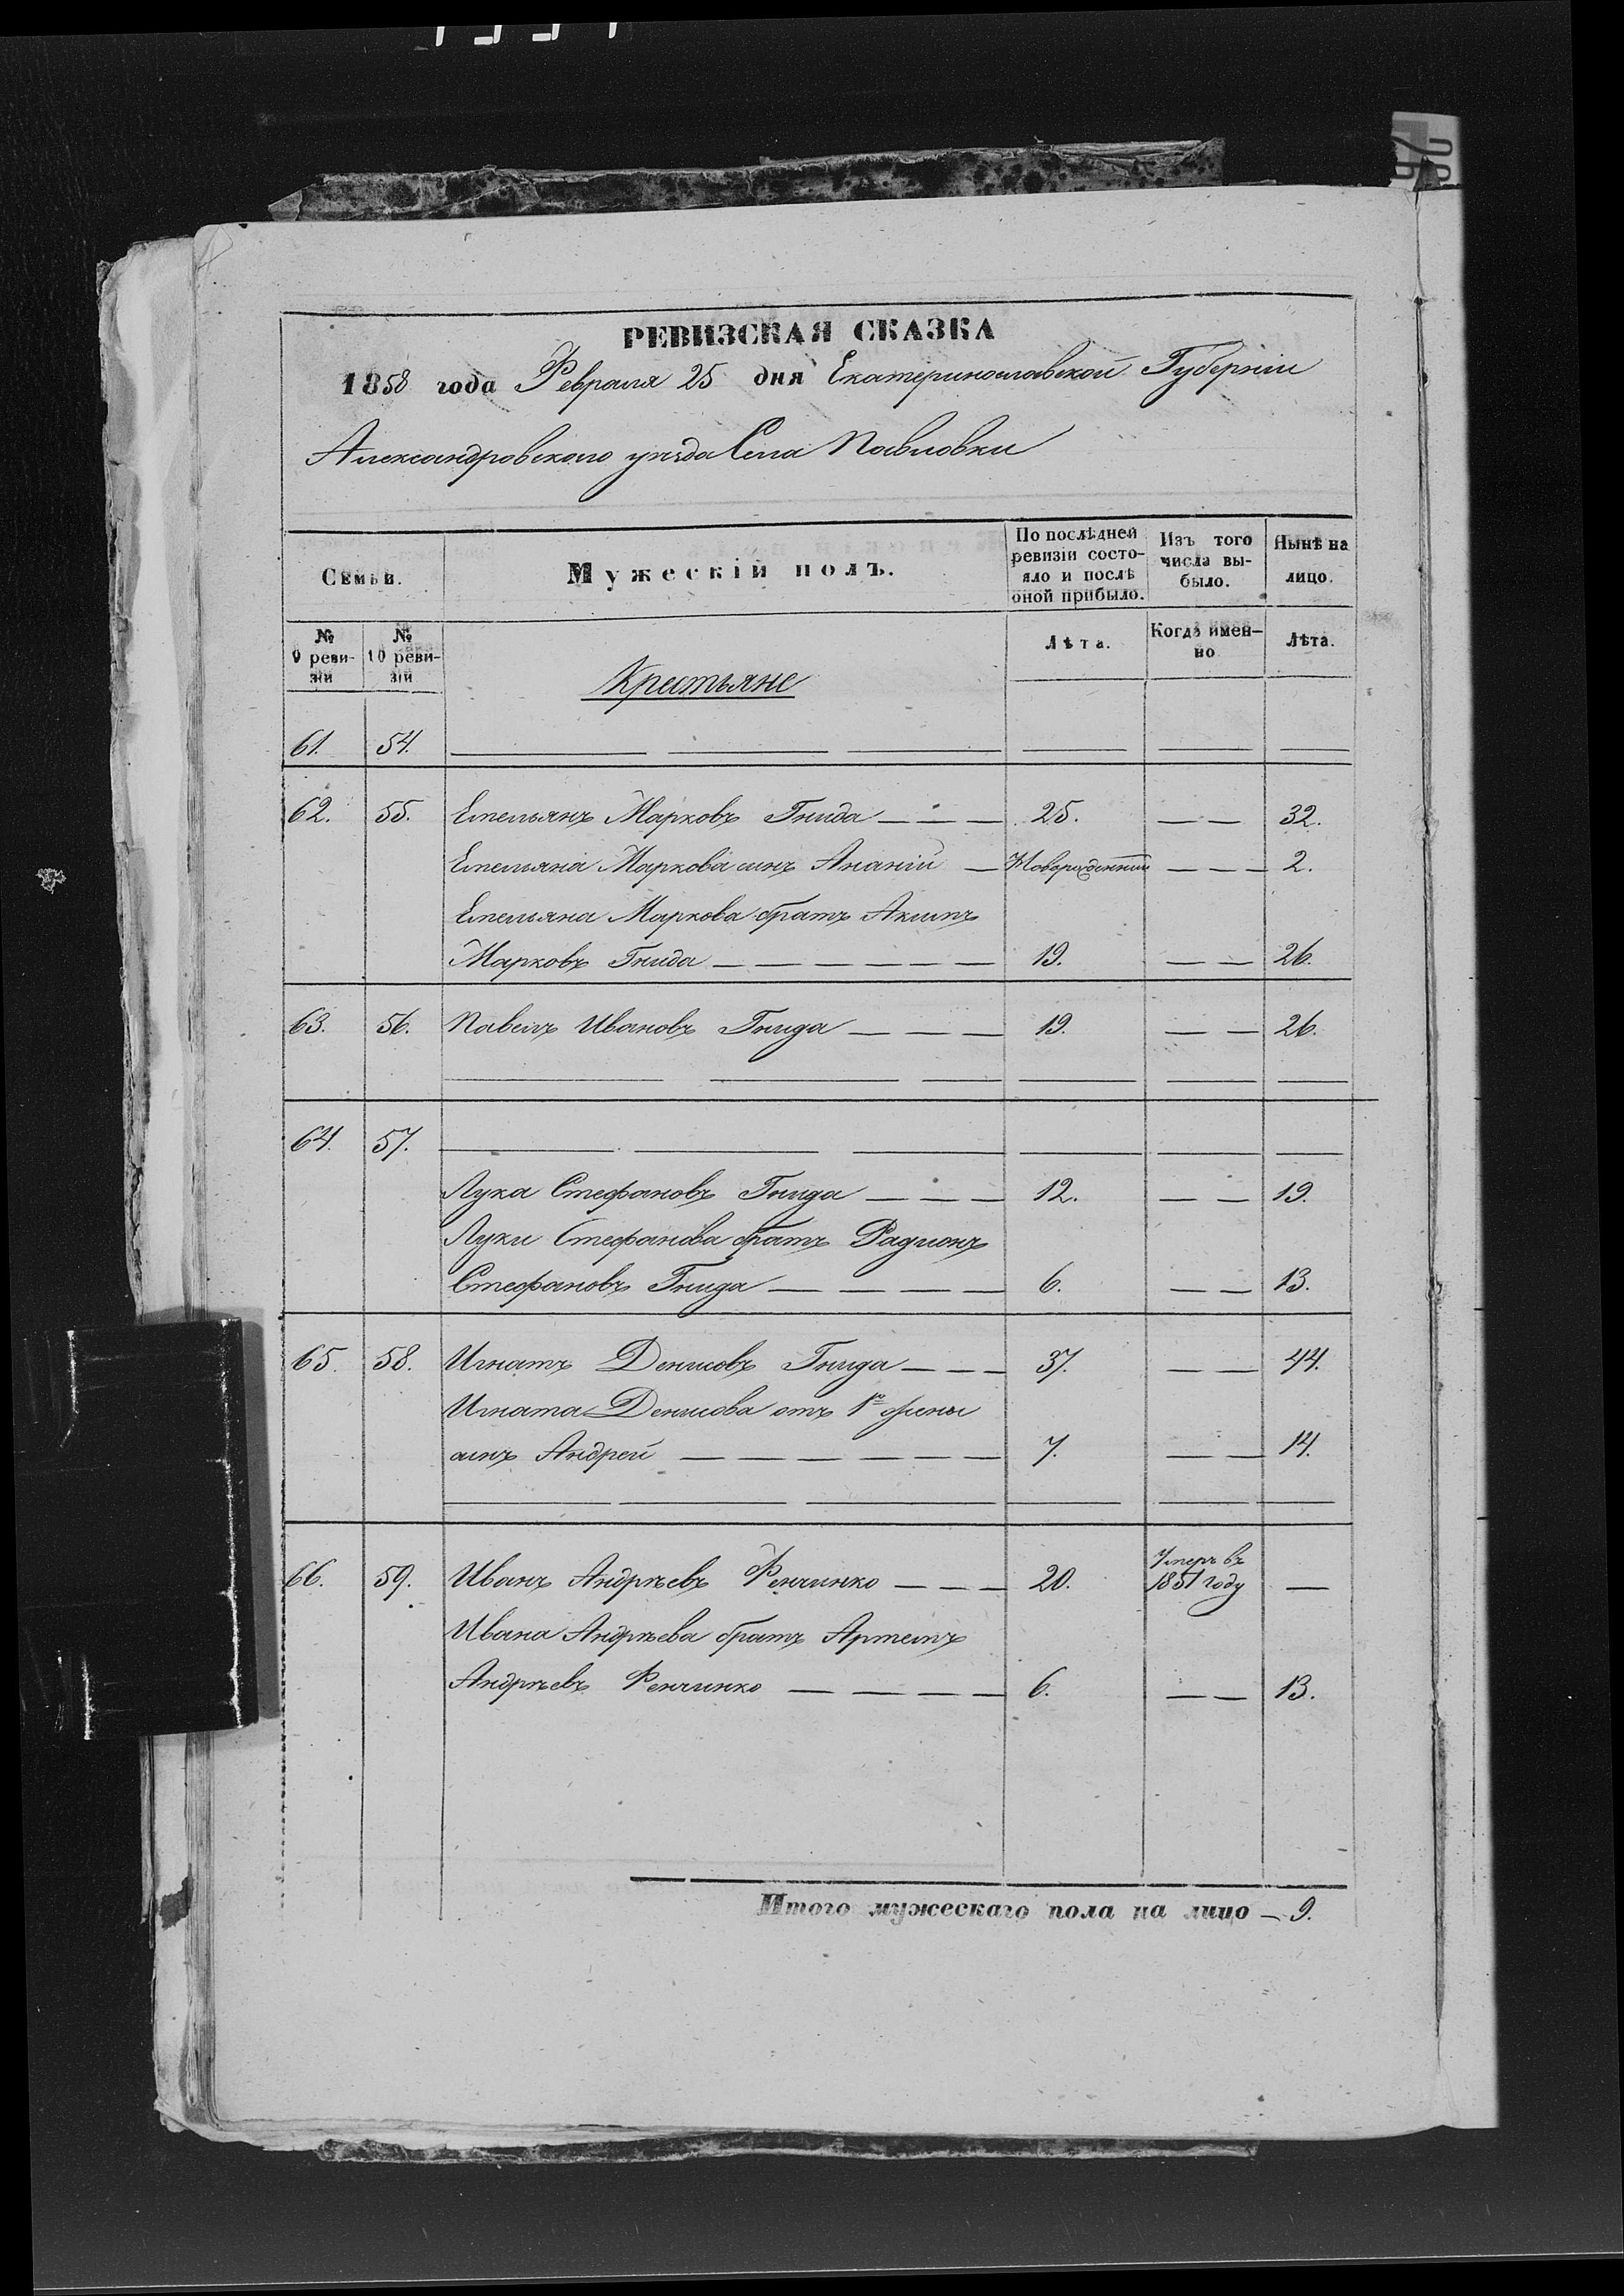 РЕВИЗСКАЯ СКАЗКА
1858 года Февраля 25 дня Екатеринославской Губерніи
Александровского уѣзда Села Павловки
Семьи.
Мужескій полъ.
По послѣдней ревизіи состояло и послѣ оной прибыло.
Изъ того числа выбыло.
Нынѣ на лицо.
№ 9 ревизіи
№ 10 ревизіи
Лѣта.
Когда именно
Лѣта.
Крестьяне
61. 54.
62. 55. Емельянъ Марковъ Гнида — — — 25. — — 32.
Емельяна Маркова сынъ Ананій — Новорожденный — — — 2.
Емельяна Маркова братъ Акимъ
Марковъ Гнида — — — — — — 19. — — 26.
63. 56. Павелъ Ивановъ Гнида — — — 19. — — 26.
64. 57.
Лука Стефановъ Гнида — — — 12. — — 19.
Луки Стефанова братъ Радионъ
Стефановъ Гнида — — — — 6. — — 13.
65. 58. Игнатъ Денисовъ Гнида — — — 37. — — 44.
Игната Денисова отъ 1й жены
сынъ Андрей — — — — — — 7. — — 14.
66. 59. Иванъ Андрѣевъ Фенчинко — — — 20. Умеръ въ 1851 году —
Ивана Андрѣева братъ Артемъ
Андрѣевъ Фенчинко — — — — 6. — — 13.
Итого мужескаго пола на лицо — 9.